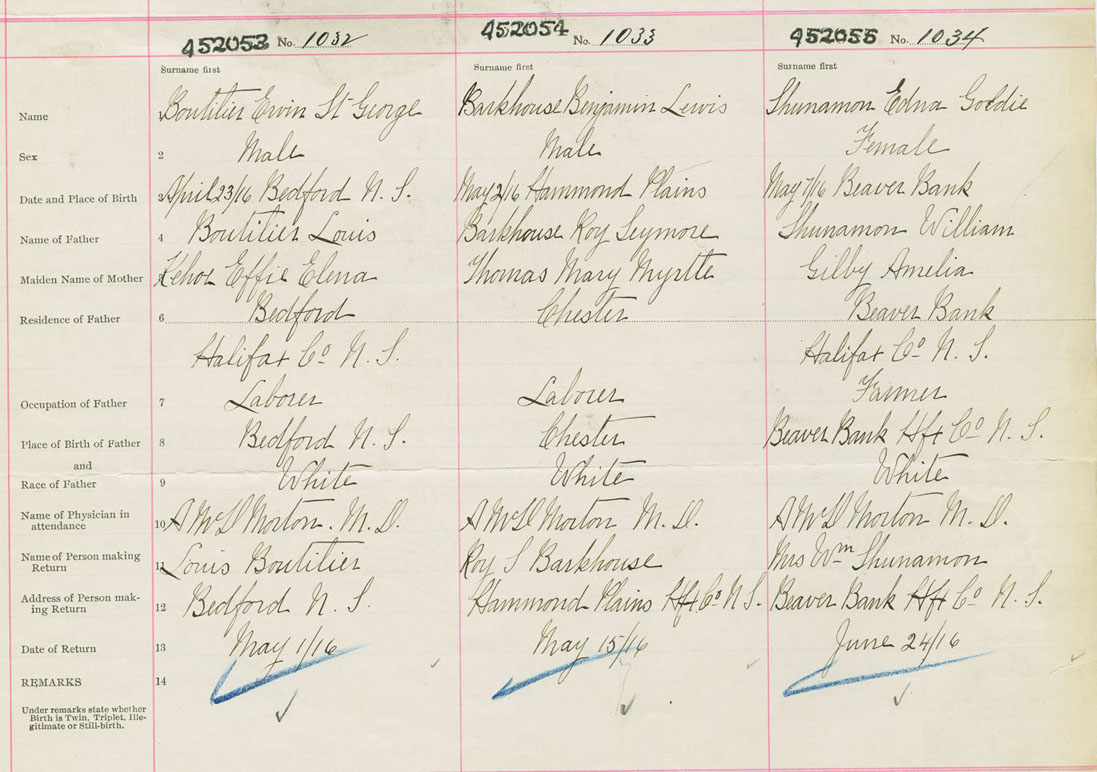 452053 No. 1032 452054 No. 1033 452055 No. 1034
Surname first Surname first Surname first
Name 1 Boutilier Ervin St George Barkhouse Benjamin Lewis Shunamon Edna Goldie
Sex 2 Male Male Female
Date and Place of Birth 3 April 23/16 Bedford N. S. May 2/16 Hammond Plains May 7/16 Beaver Bank
Name of Father 4 Boutilier Louis Barkhouse Roy Seymore Shunamon William
Maiden Name of Mother Kehoe Effie Elena Thomas Mary Myrtle Gilby Amelia
Residence of Father 6 Bedford Chester Beaver Bank
Halifax Co N. S. Halifax Co N. S.
Occupation of Father 7 Laborer Laborer Farmer
Place of Birth of Father 8 Bedford N. S. Chester Beaver Bank Hfx Co N. S.
and
Race of Father 9 White White White
Name of Physician in
attendance 10 A McD Morton. M. D. A McD Morton M. D. A McD Morton M. D.
Name of Person making
Return 11 Louis Boutilier Roy S Barkhouse Mrs Wm Shunamon
Address of Person mak-
ing Return 12 Bedford N. S. Hammond Plains Hfx Co N S. Beaver Bank Hfx Co N. S.
Date of Return 13 May 1/16 May 15/16 June 24/16
REMARKS 14
Under remarks state whether
Birth is Twin, Triplet, Ille-
gitimate or Still-birth.